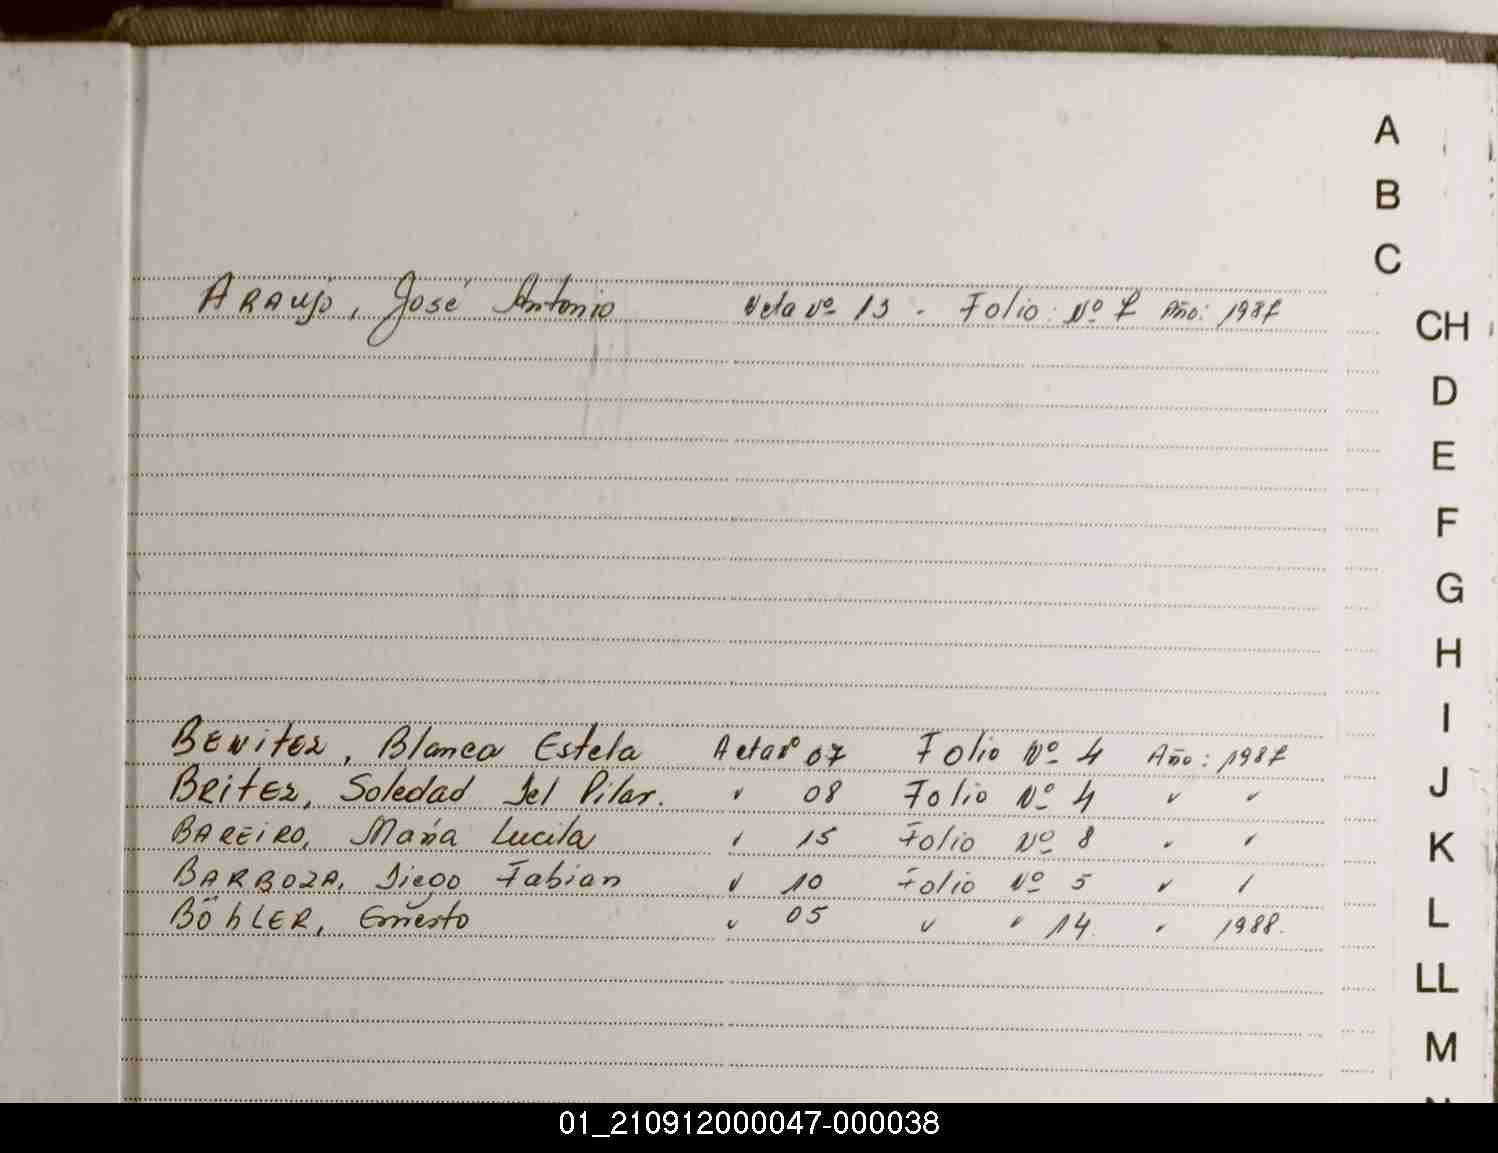 A
B
C
ARAUJO, José Antonio Acta Nº 13 - Folio: Nº 7 Año: 1987
CH
D
E
F
G
H
I
BENITEZ, Blanca Estela Acta nº 07 Folio Nº 4 Año: 1987
J
BRITEZ, Soledad Del Pilar. " 08 Folio Nº 4 " "
BAREIRO, María Lucila " 15 Folio Nº 8 " "
K
BARBOZA, Diego Fabian " 10 Folio Nº 5 " "
BÖHLER, Ernesto " 05 " " 14. " 1988.
L
LL
M
01_210912000047-000038